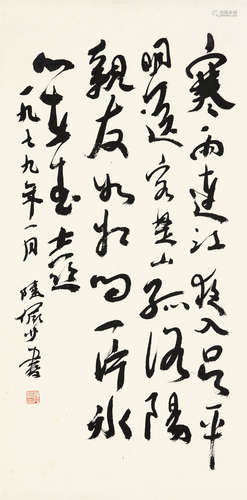 寒雨連江夜入吳平
明送客楚山孤洛陽
親友如相問一片冰
心在玉壺
一九七九年一月 陸儼少書